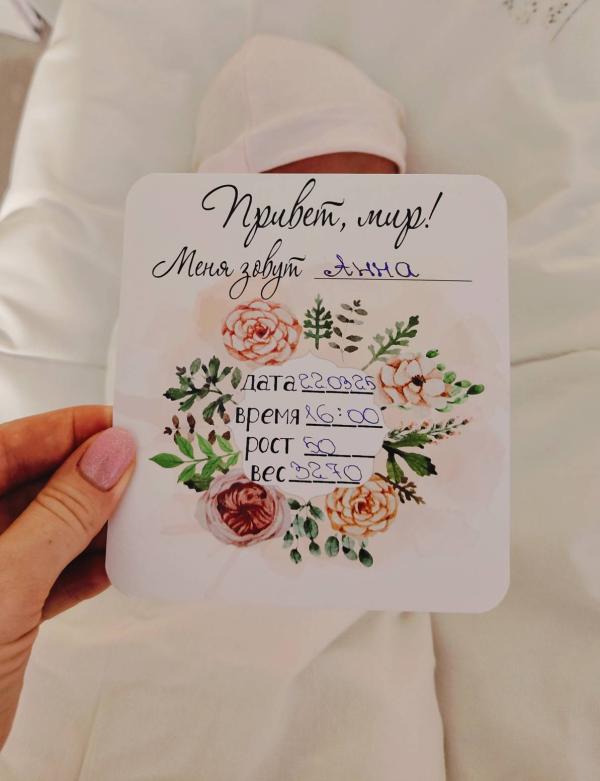 Привет, мир!
Меня зовут Анна
дата 220325
время 16:00
рост 50
вес 3270